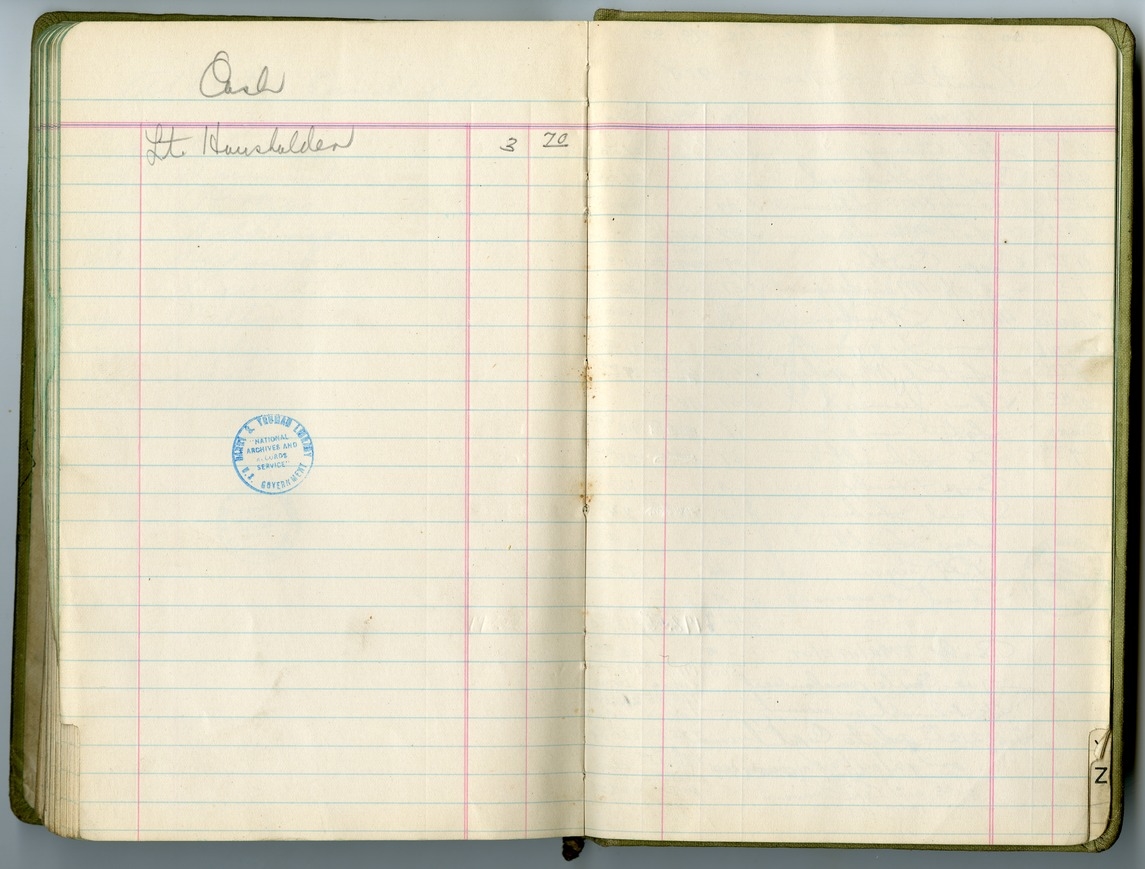 Cash
Lt. Housholder 3 70
HARRY S. TRUMAN LIBRARY
"NATIONAL
ARCHIVES AND
RECORDS
SERVICE"
U.S. GOVERNMENT
Y
Z